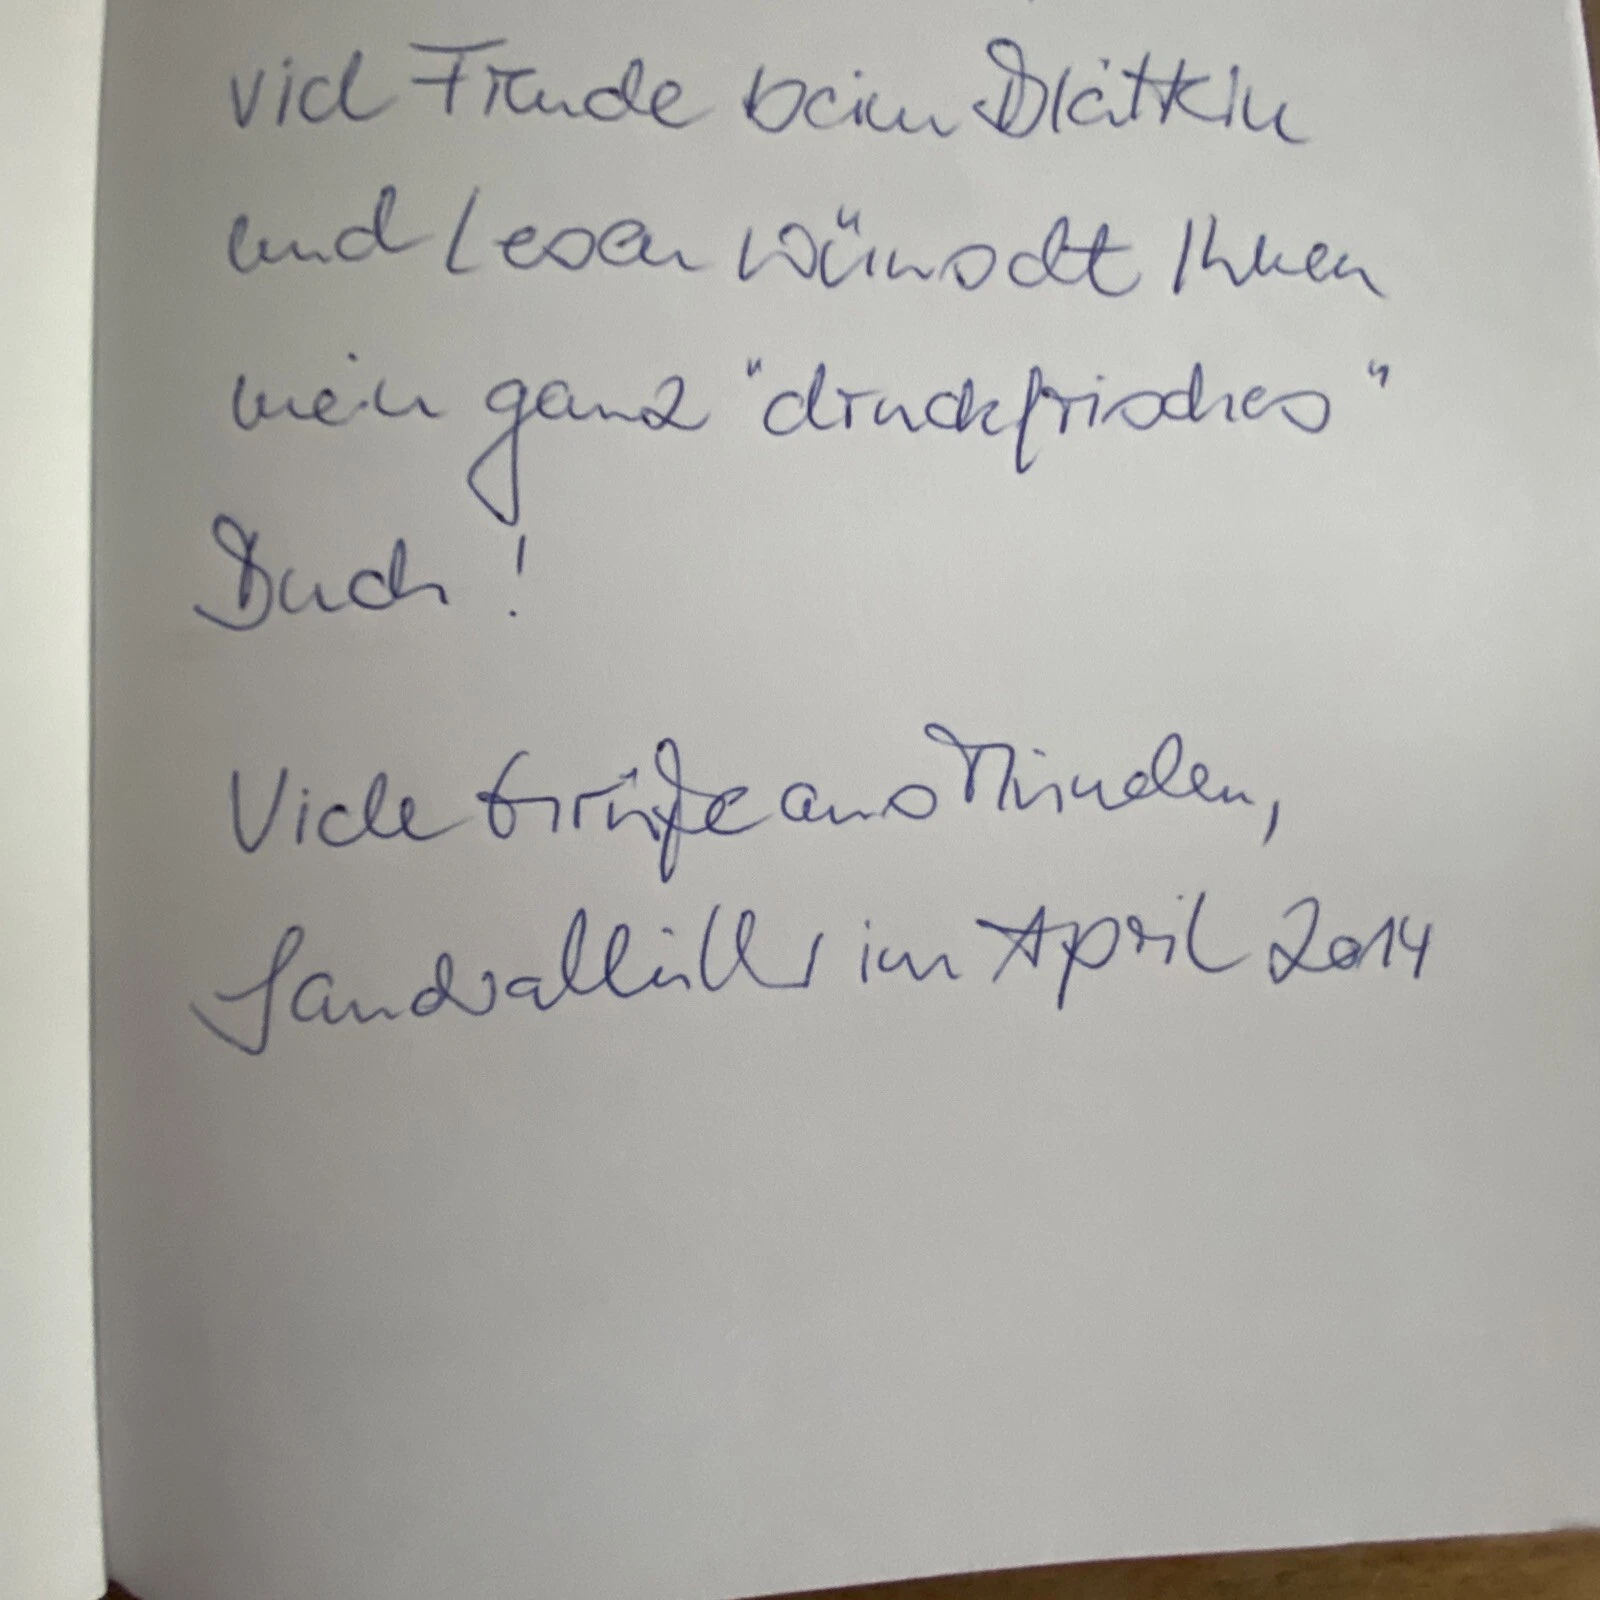 viel Freude beim Blättern
und Lesen wünscht Ihnen
mein ganz "druckfrisches"
Buch!
Viele Grüße aus Minden,
im April 2014